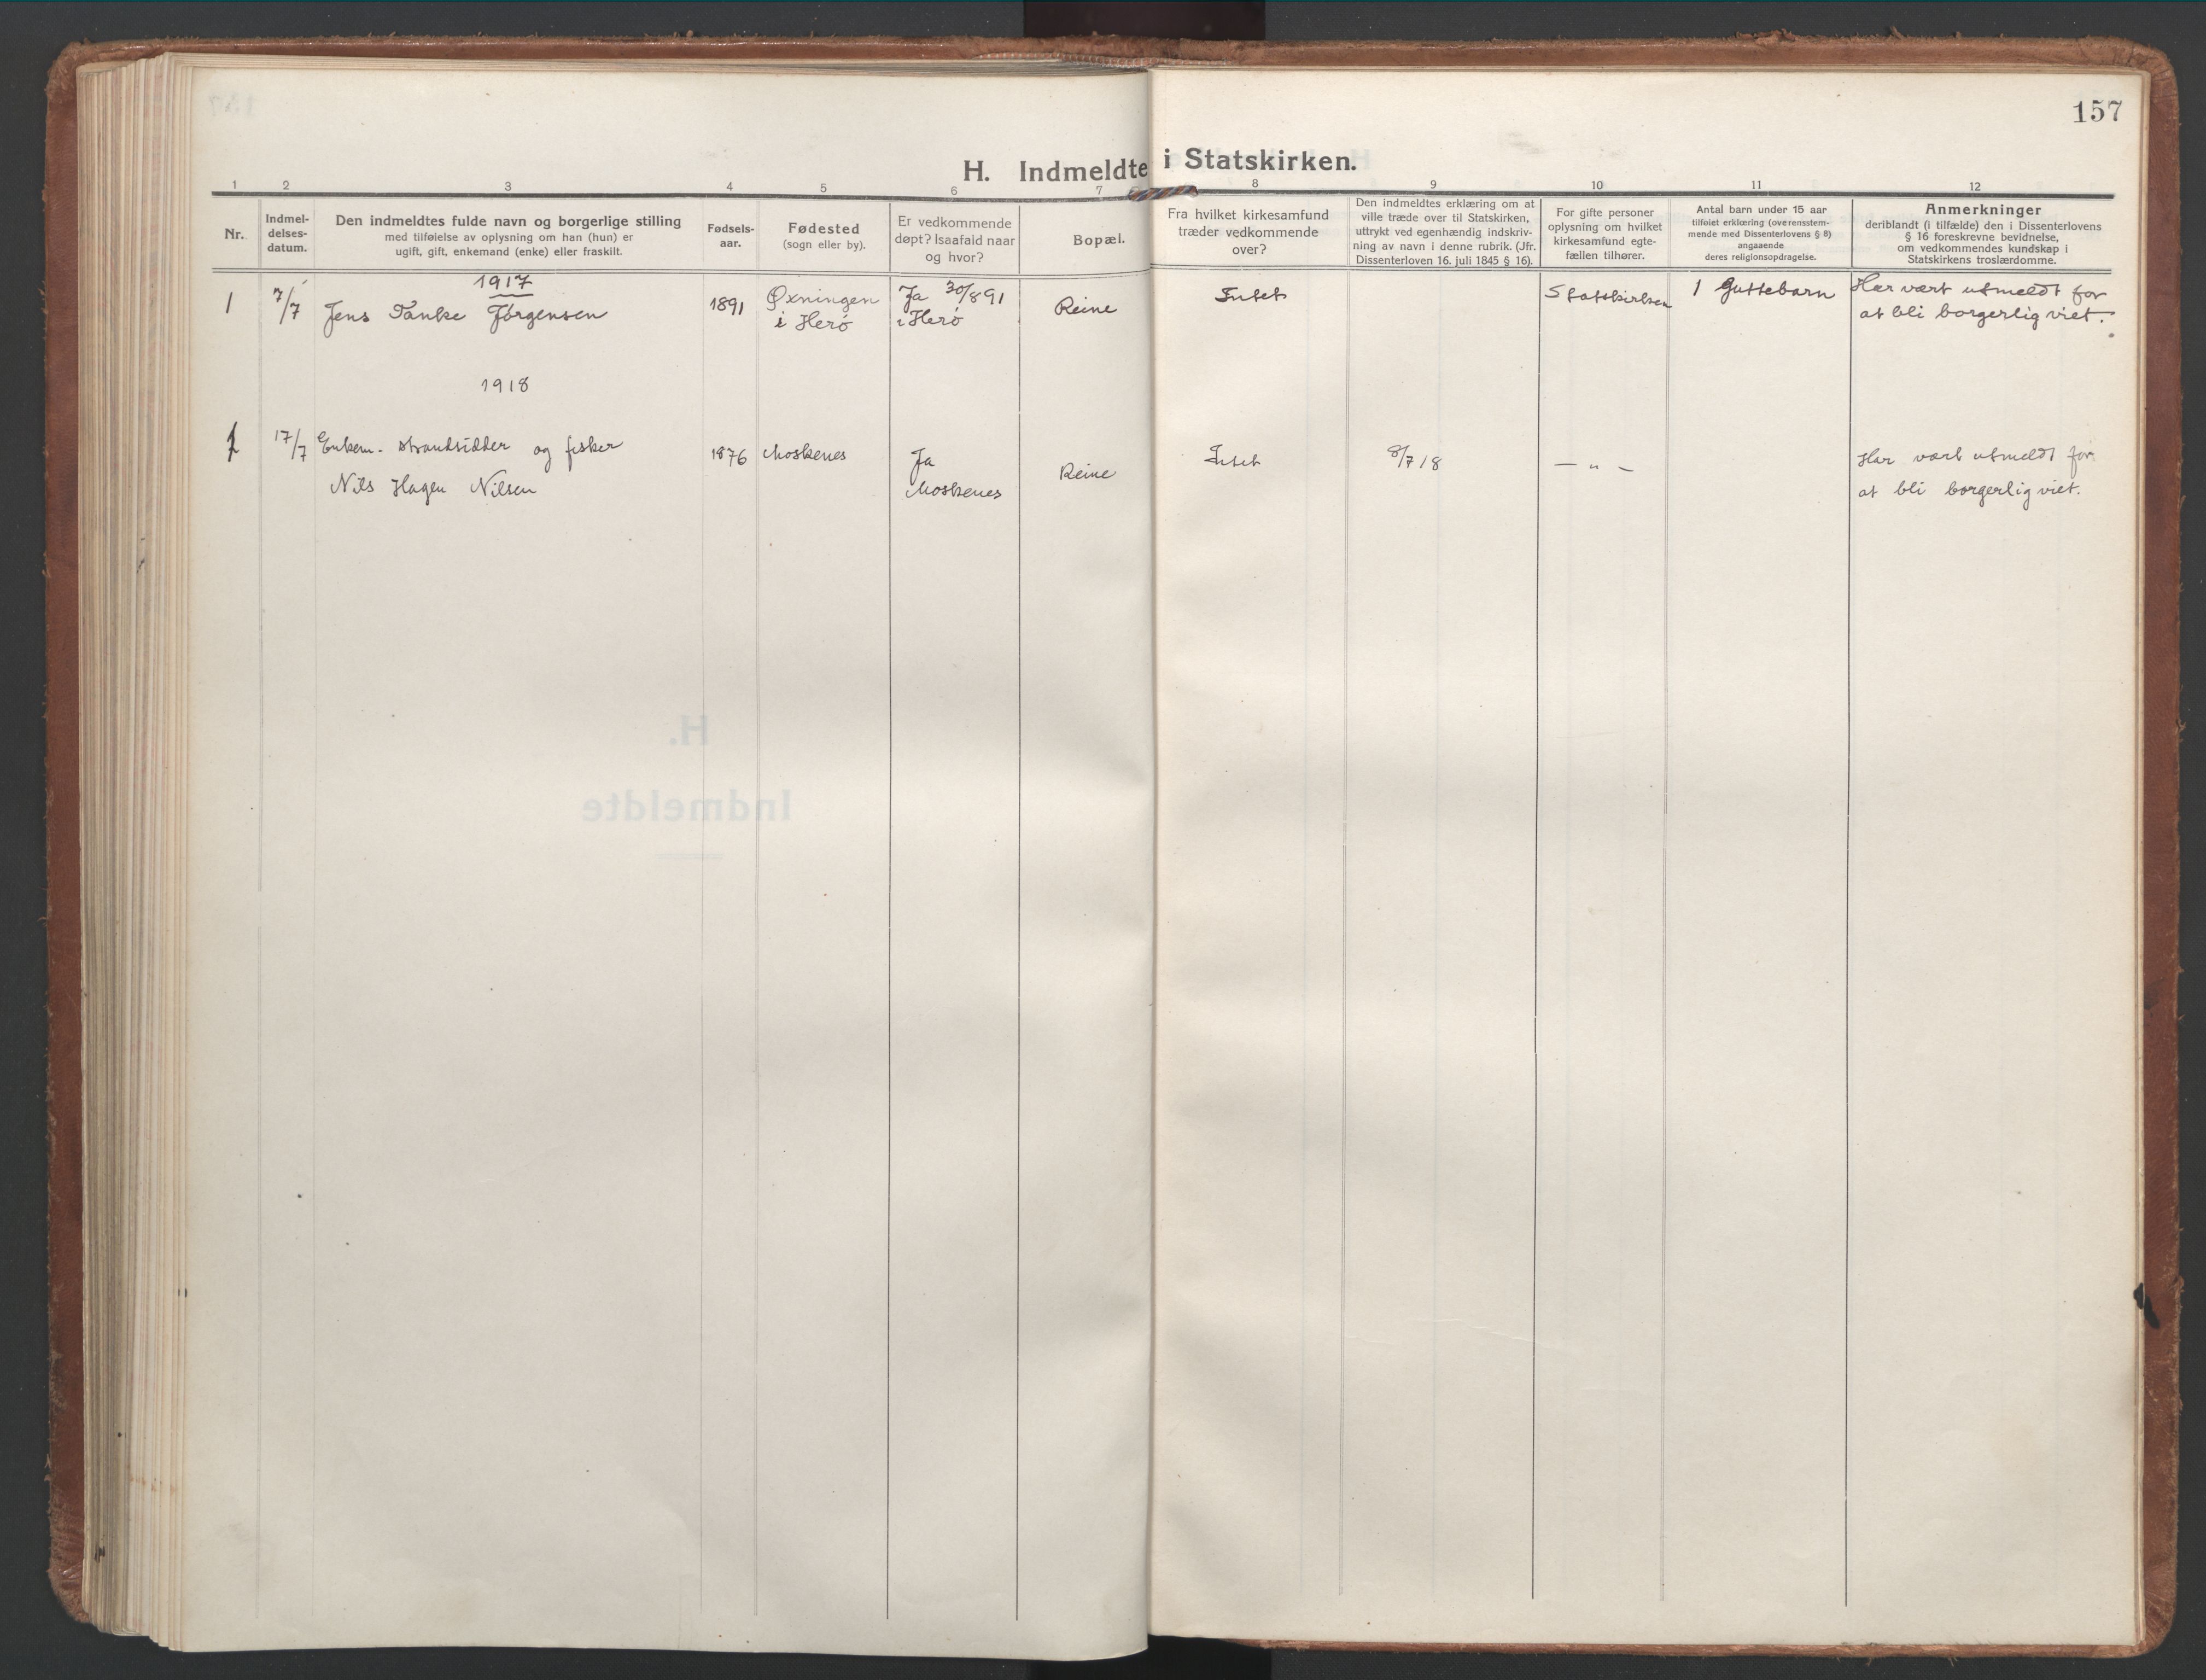 157
H. Indmeldte i Statskirken.
1 2 3 4 5 6 7 8 9 10 11 12
Nr.
Indmel-
delses-
datum.
Den indmeldtes fulde navn og borgerlige stilling
med tilføielse av oplysning om han (hun) er
ugift, gift, enkemand (enke) eller fraskilt.
Fødsels-
aar.
Fødested
(sogn eller by).
Er vedkommende
døpt? Isaafald naar
og hvor?
Bopæl.
Fra hvilket kirkesamfund
træder vedkommende
over?
Den indmeldtes erklæring om at
ville træde over til Statskirken,
uttrykt ved egenhændig indskriv-
ning av navn i denne rubrik. (Jfr.
Dissenterloven 16. juli 1845 § 16).
For gifte personer
oplysning om hvilket
kirkesamfund egte-
fællen tilhører.
Antal barn under 15 aar
tilføiet erklæring (overensstem-
mende med Dissenterlovens § 8)
angaaende
deres religionsopdragelse.
Anmerkninger
deriblandt (i tilfælde) den i Dissenterlovens
§ 16 foreskrevne bevidnelse,
om vedkommendes kundskap i
Statskirkens troslærdomme.
1917
1
7/7
Jens Tanke Jørgensen
1891
Øxningen
i Herø
Ja 30/8 91
i Herø
Reine
Intet
Statskirken
1 Guttebarn
Har vært utmeldt for
at bli borgerlig viet.
1918
1
17/7
Enkem. strandsidder og fisker
Nils Hagen Nilsen
1876
Moskenes
Ja
Moskenes
Reine
Intet
8/7 18
— " —
Har vært utmeldt for
at bli borgerlig viet.